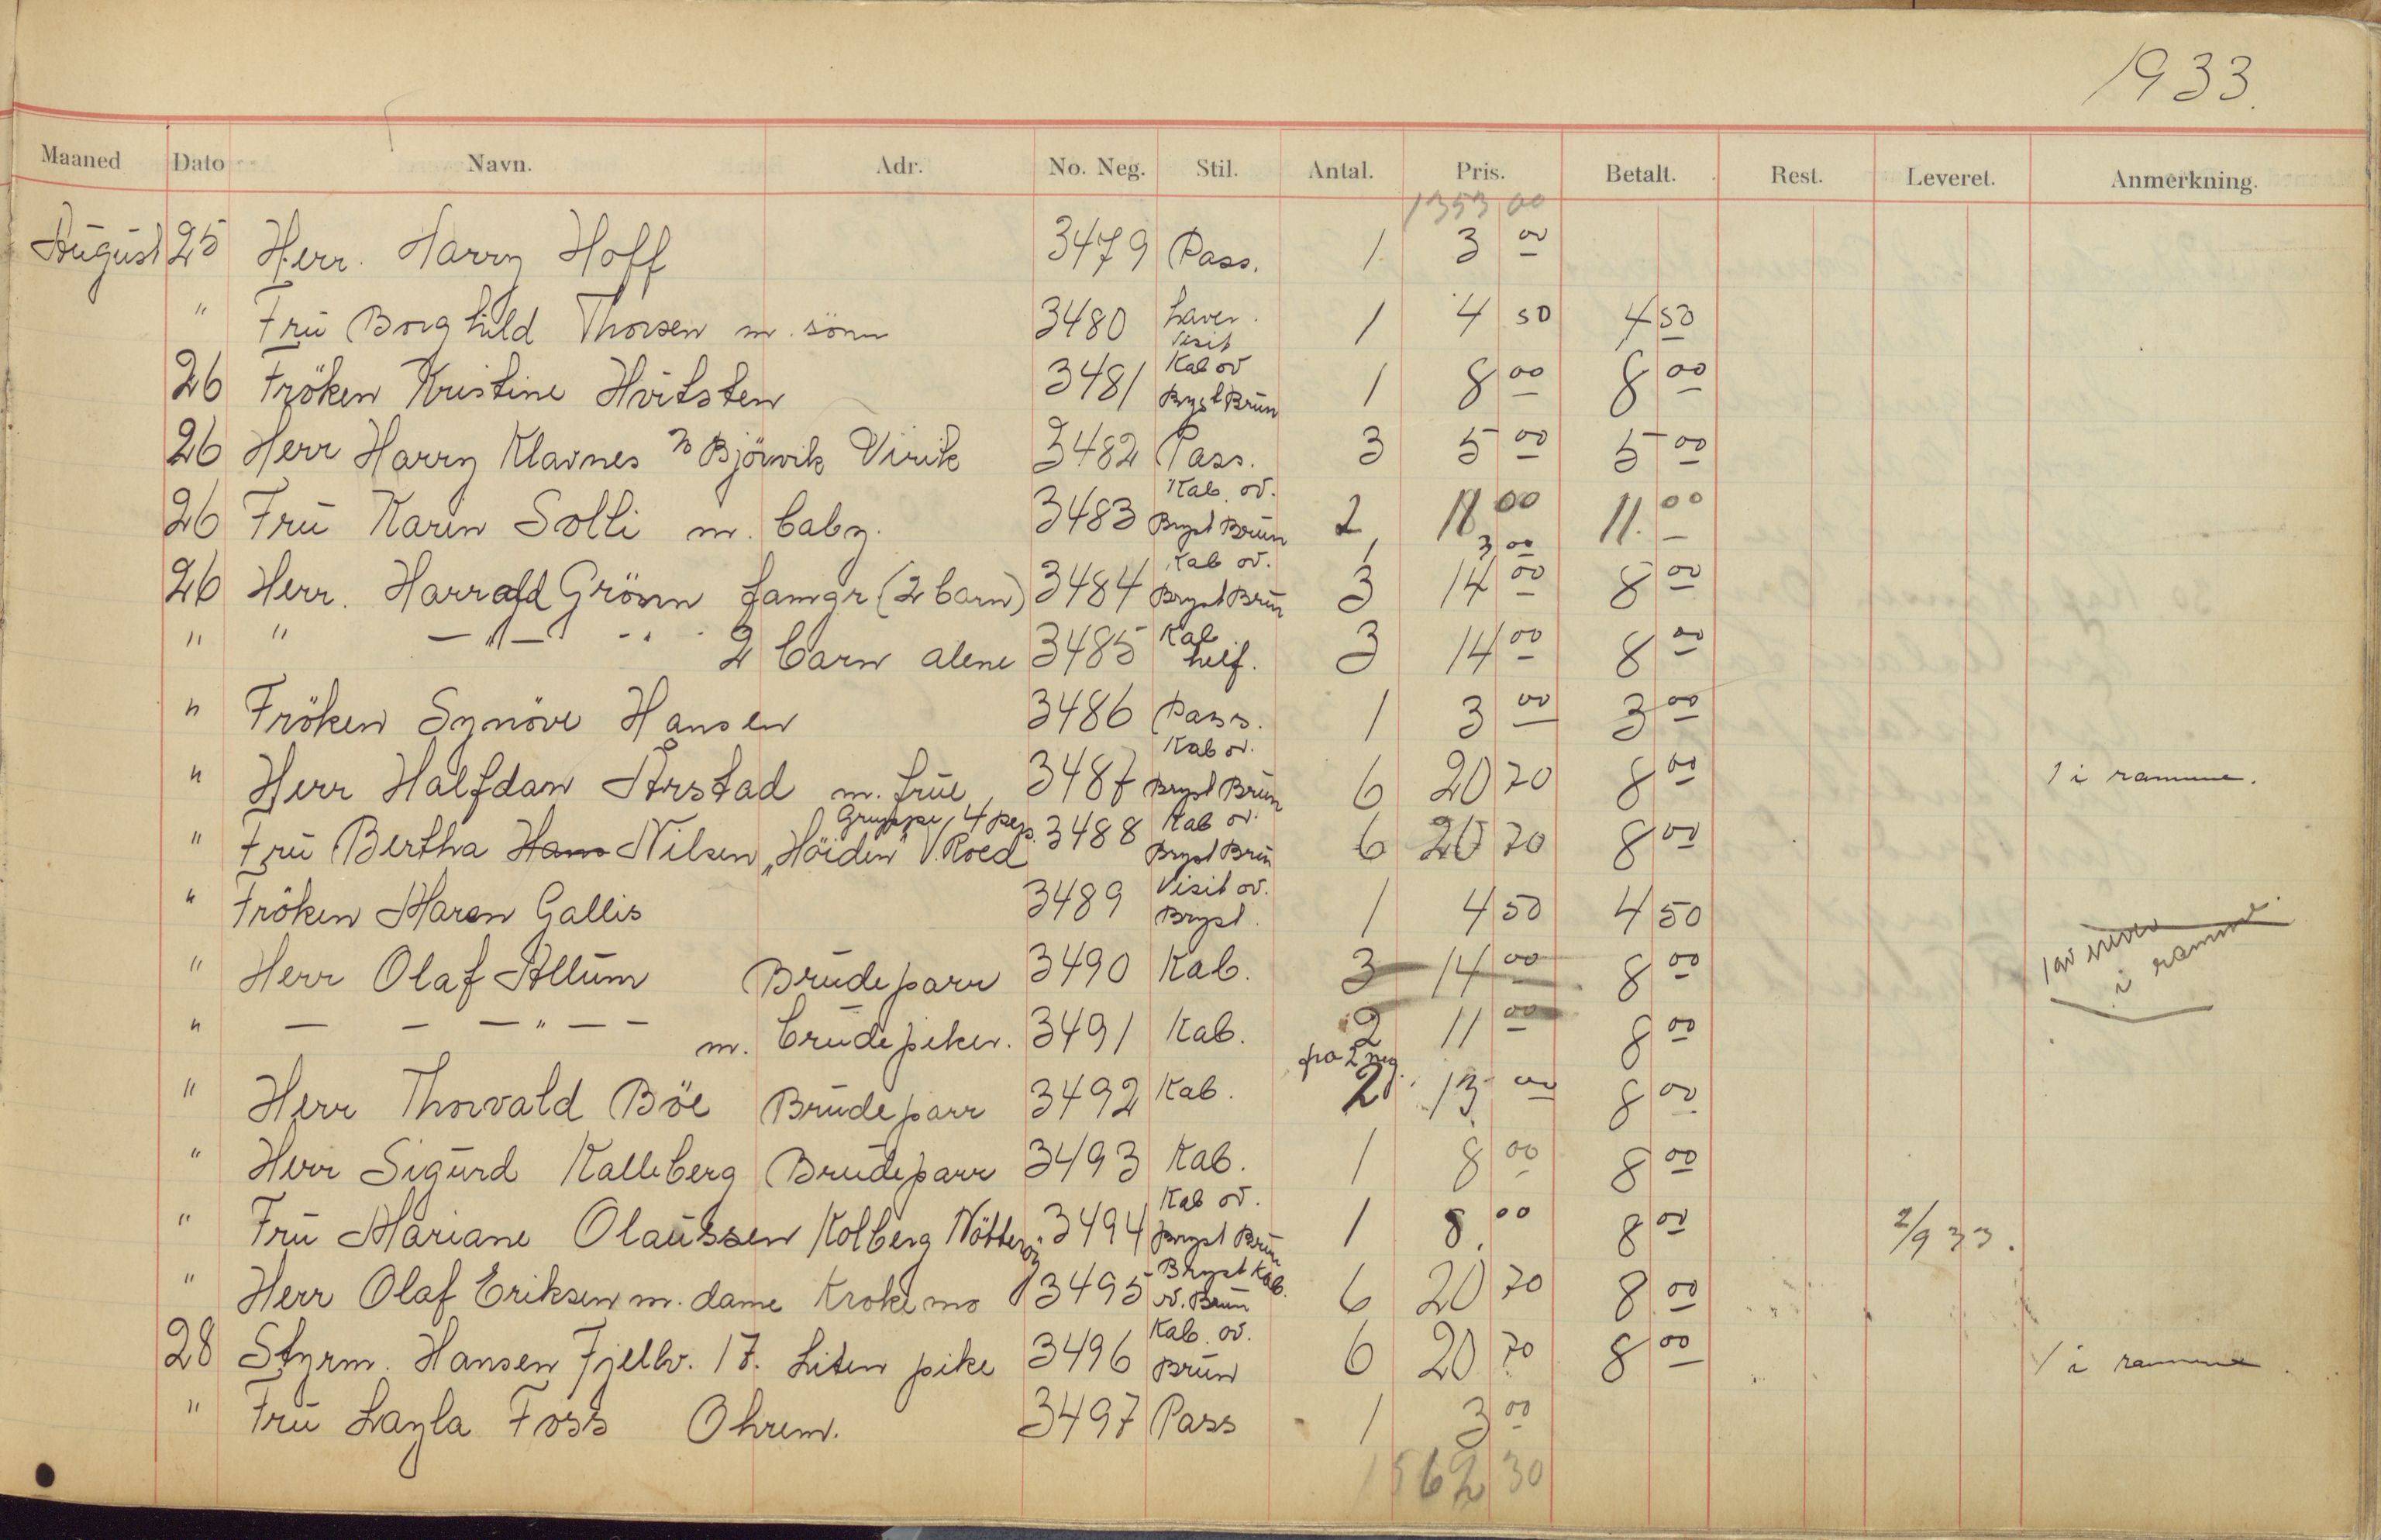 1933.
Maaned Dato Navn. Adr. No. Neg. Stil. Antal. Pris. Betalt. Rest. Leveret. Anmerkning.
1353 00
August 25 Herr. Harry Hoff 3479 Pass. 1 3 00
" Frü Borghild Thorsen m. sönn 3480 Laver. Visit 1 4 50 4 50
26 Fröken Kristine Hvitsten 3481 Kab ov Bryst Brün 1 8 00 8 00
26 Herr Harry Klavnes Björvik Virik 3482 Pass. 3 5 00 5 00
26 Frü Karin Solli m. baby. 3483 Kab. ov. Bryst Brün 2 11 00 11. 00
1 3 00
26 Herr. Harrald Grönn famgr (2 barn) 3484 Kab ov. Bryst Brün 3 14 00 8 00
" " — " — 2 barn alene 3485 Kab helf. 3 14 00 8 00
" Fröken Synöve Hansen 3486 Pass. 1 3 00 3 00
" Herr Halfdan Årstad m. früe 3487 Kab ov. Bryst Brün 6 20 70 8 00 1 i ramme.
Gruppe, 4 pers.
" Frü Bertha Hans Nilsen „Höiden" V. Roed 3488 Kab ov. Bryst Brün 6 20 70 8 00
" Fröken Maren Gallis 3489 Visit ov. Bryst. 1 4 50 4 50
" Herr Olaf Allüm Brüdeparr 3490 Kab. 3 14 00 8 00 1 av
i ramme
" — — — " — — m. brüdepiker. 3491 Kab. 2 11 00 8 00
fra 2 neg.
" Herr Thorvald Böe Brüdeparr 3492 Kab. 2 13 00 8 00
" Herr Sigürd Kalleberg Brüdeparr 3493 Kab. 1 8 00 8 00
" Frü Mariane Olaüssen Kolberg Nötteröy 3494 Kab ov. Bryst Brün 1 8. 00 8 00 2/9 33.
" Herr Olaf Eriksen m. dame Krokemo 3495 Bryst Kab. ov. Brün 6 20 70 8 00
28 Styrm. Hansen Fjellv. 17. Liten pike 3496 Kab. ov. Brün 6 20 70 8 00 1 i ramme.
" Frü Layla Foss Ohrem. 3497 Pass 1 3 00
1562 30